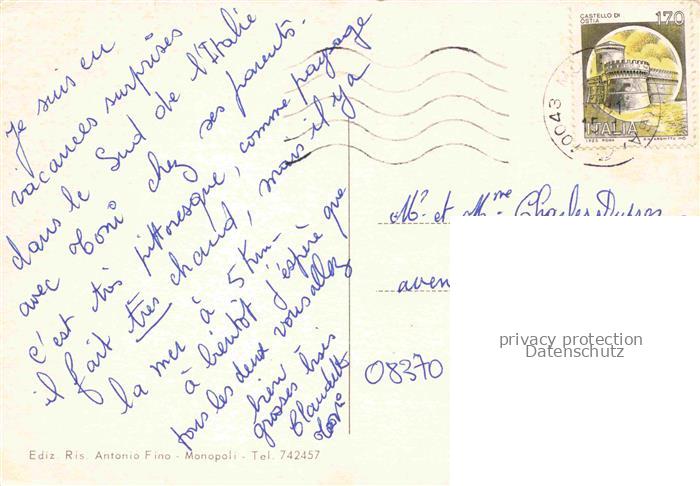 Je suis en
vacances surprises
dans le Sud de l'Italie
avec Toni chez ses parents.
c'est très pittoresque, comme paysage
il fait très chaud, mais il y a
la mer à 5 Km.
à bientôt j'espère que
tous les deux vous allez
bien
grosses bises
Claudette
Toni
CASTELLO DI
OSTIA
170
ITALIA
Mr et Mme Charles
aven
08370
privacy protection
Datenschutz
Ediz. Ris. Antonio Fino - Monopoli - Tel. 742457